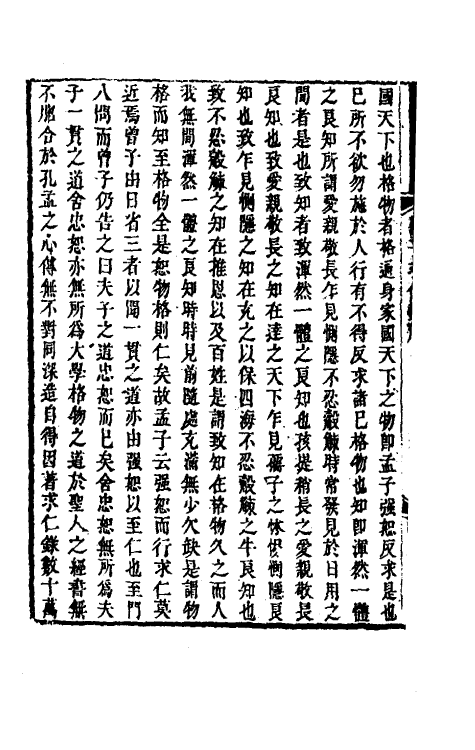 國天下也格物者格遍身家國天下之物即孟子强恕反求是也
已所不欲勿施於人行有不得反求諸已格物也知即渾然一體
之良知所謂愛親敬長乍見惻隱不忍觳觫時常發見於日用之
間者是也致知者致渾然一體之良知也孩提稍長之愛親敬長
良知也致愛親敬長之知在達之天下乍見孺子之怵惕惻隱良
知也致乍見惻隱之知在充之以保四海不忍觳觫之牛良知也
致不忍觳觫之知在推恩以及百姓是謂致知在格物久之而人
我無間渾然一體之良知時時見前隨處充滿無少欠缺是謂物
格而知至格物全是恕物格則仁矣故孟子云强恕而行求仁莫
近焉曾子由日省三者以聞一貫之道亦由强恕以至仁也至門
人問而曾子仍告之曰夫子之道忠恕而已矣舍忠恕無所爲夫
子一貫之道舍忠恕亦無所爲大學格物之道於聖人之經書無
不脗合於孔孟之心傳無不對同深造自得因著求仁錄數十萬